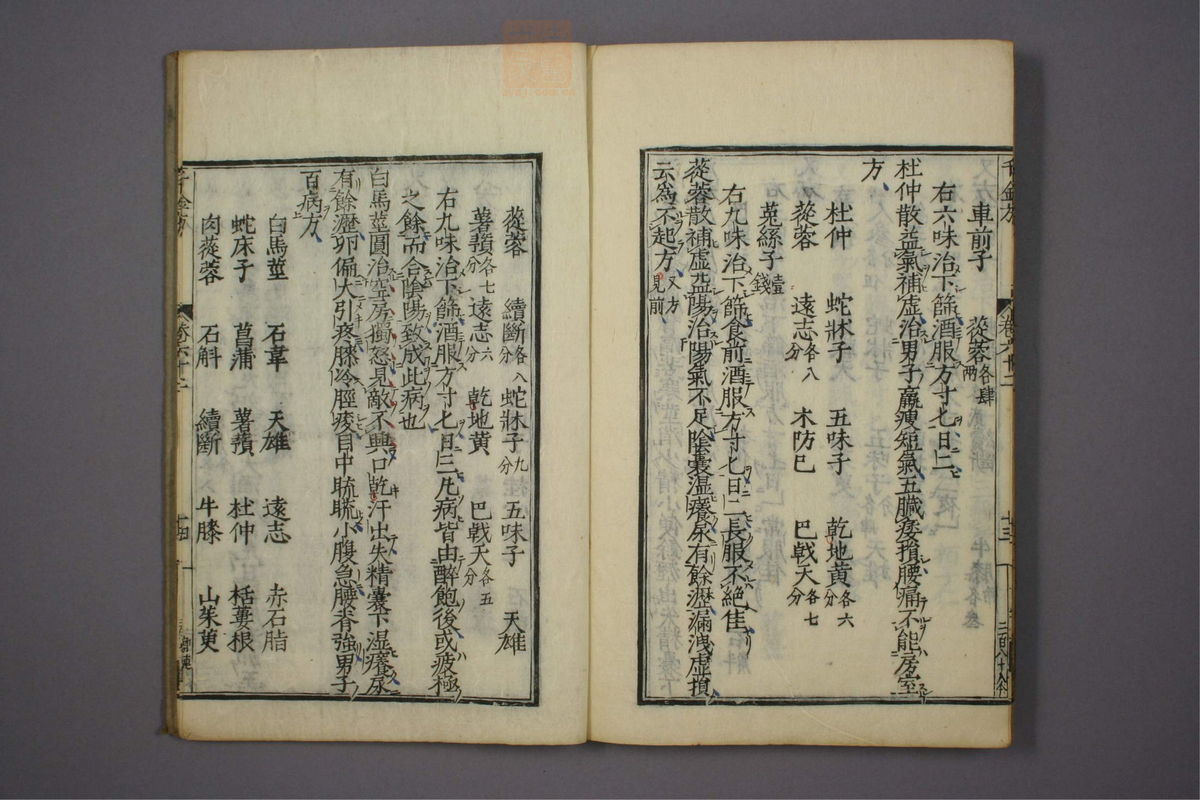 車前子　蓯蓉各肆兩
右六味治下篩酒服方寸匕日二
杜仲散益氣補虛治男子羸瘦短氣五臟痿損腰痛不能房室
方
杜仲　蛇牀子　五味子　乾地黃各六分
蓯蓉　遠志各八分　木防巳　巴戟天各七分
菟絲子壹錢
右九味治下篩食前酒服方寸匕日二長服不絕佳
蓯蓉散補虛益陽治陽氣不足陰囊濕癢尿有餘瀝漏洩虛損
云爲不起方又方見前
蓯蓉　續斷各八分　蛇牀子九分　五味子　天雄
薯蕷各七分　遠志六分　乾地黃　巴戟天各五分
右九味治下篩酒服方寸匕日三凡病皆由醉飽後或疲極
之餘而合陰陽致成此病也
白馬莖圓治空房獨怒見敵不興口乾汗出失精囊下濕癢尿
有餘瀝卵偏大引疼膝冷脛痠目中䀮䀮小腹急腰脊強男子
百病方
白馬莖　石韋　天雄　遠志　赤石脂
蛇床子　菖蒲　薯蕷　杜仲　栝蔞根
肉蓯蓉　石斛　續斷　牛膝　山茱萸
千金方
卷六十二
十四